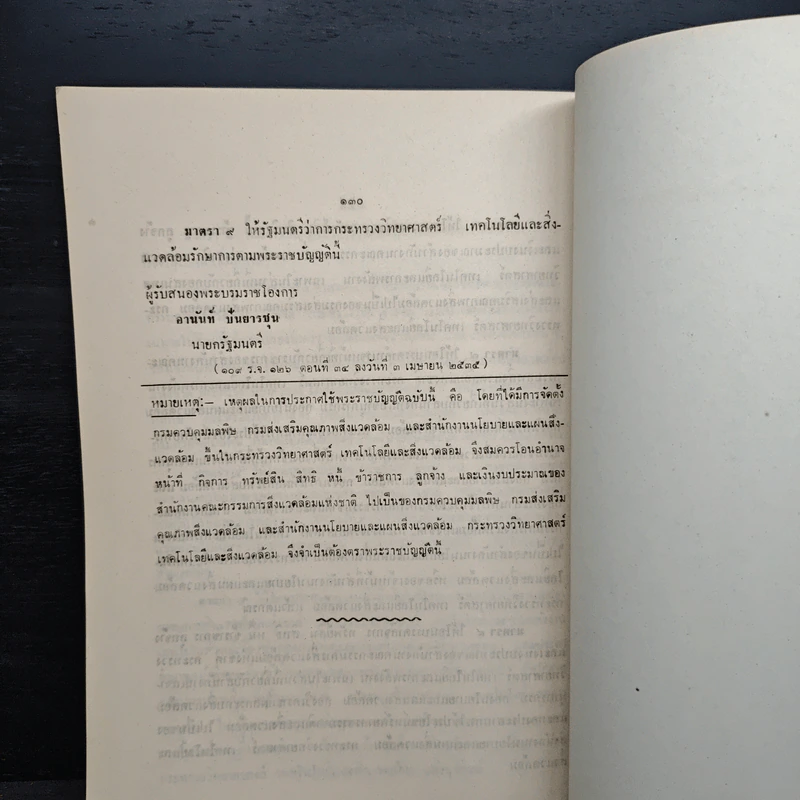 ๑๓๐
มาตรา ๙ ให้รัฐมนตรีว่าการกระทรวงวิทยาศาสตร์ เทคโนโลยีและสิ่ง-
แวดล้อมรักษาการตามพระราชบัญญัตินี้
ผู้รับสนองพระบรมราชโองการ
อานันท์ ปันยารชุน
นายกรัฐมนตรี
(๑๐๙ ร.จ. ๑๒๖ ตอนที่ ๓๔ ลงวันที่ ๓ เมษายน ๒๕๓๕)
หมายเหตุ:- เหตุผลในการประกาศใช้พระราชบัญญัติฉบับนี้ คือ โดยที่ได้มีการจัดตั้ง
กรมควบคุมมลพิษ กรมส่งเสริมคุณภาพสิ่งแวดล้อม และสำนักงานนโยบายและแผนสิ่ง-
แวดล้อม ขึ้นในกระทรวงวิทยาศาสตร์ เทคโนโลยีและสิ่งแวดล้อม จึงสมควรโอนอำนาจ
หน้าที่ กิจการ ทรัพย์สิน สิทธิ หนี้ ข้าราชการ ลูกจ้าง และเงินงบประมาณของ
สำนักงานคณะกรรมการสิ่งแวดล้อมแห่งชาติ ไปเป็นของกรมควบคุมมลพิษ กรมส่งเสริม
คุณภาพสิ่งแวดล้อม และสำนักงานนโยบายและแผนสิ่งแวดล้อม กระทรวงวิทยาศาสตร์
เทคโนโลยีและสิ่งแวดล้อม จึงจำเป็นต้องตราพระราชบัญญัตินี้